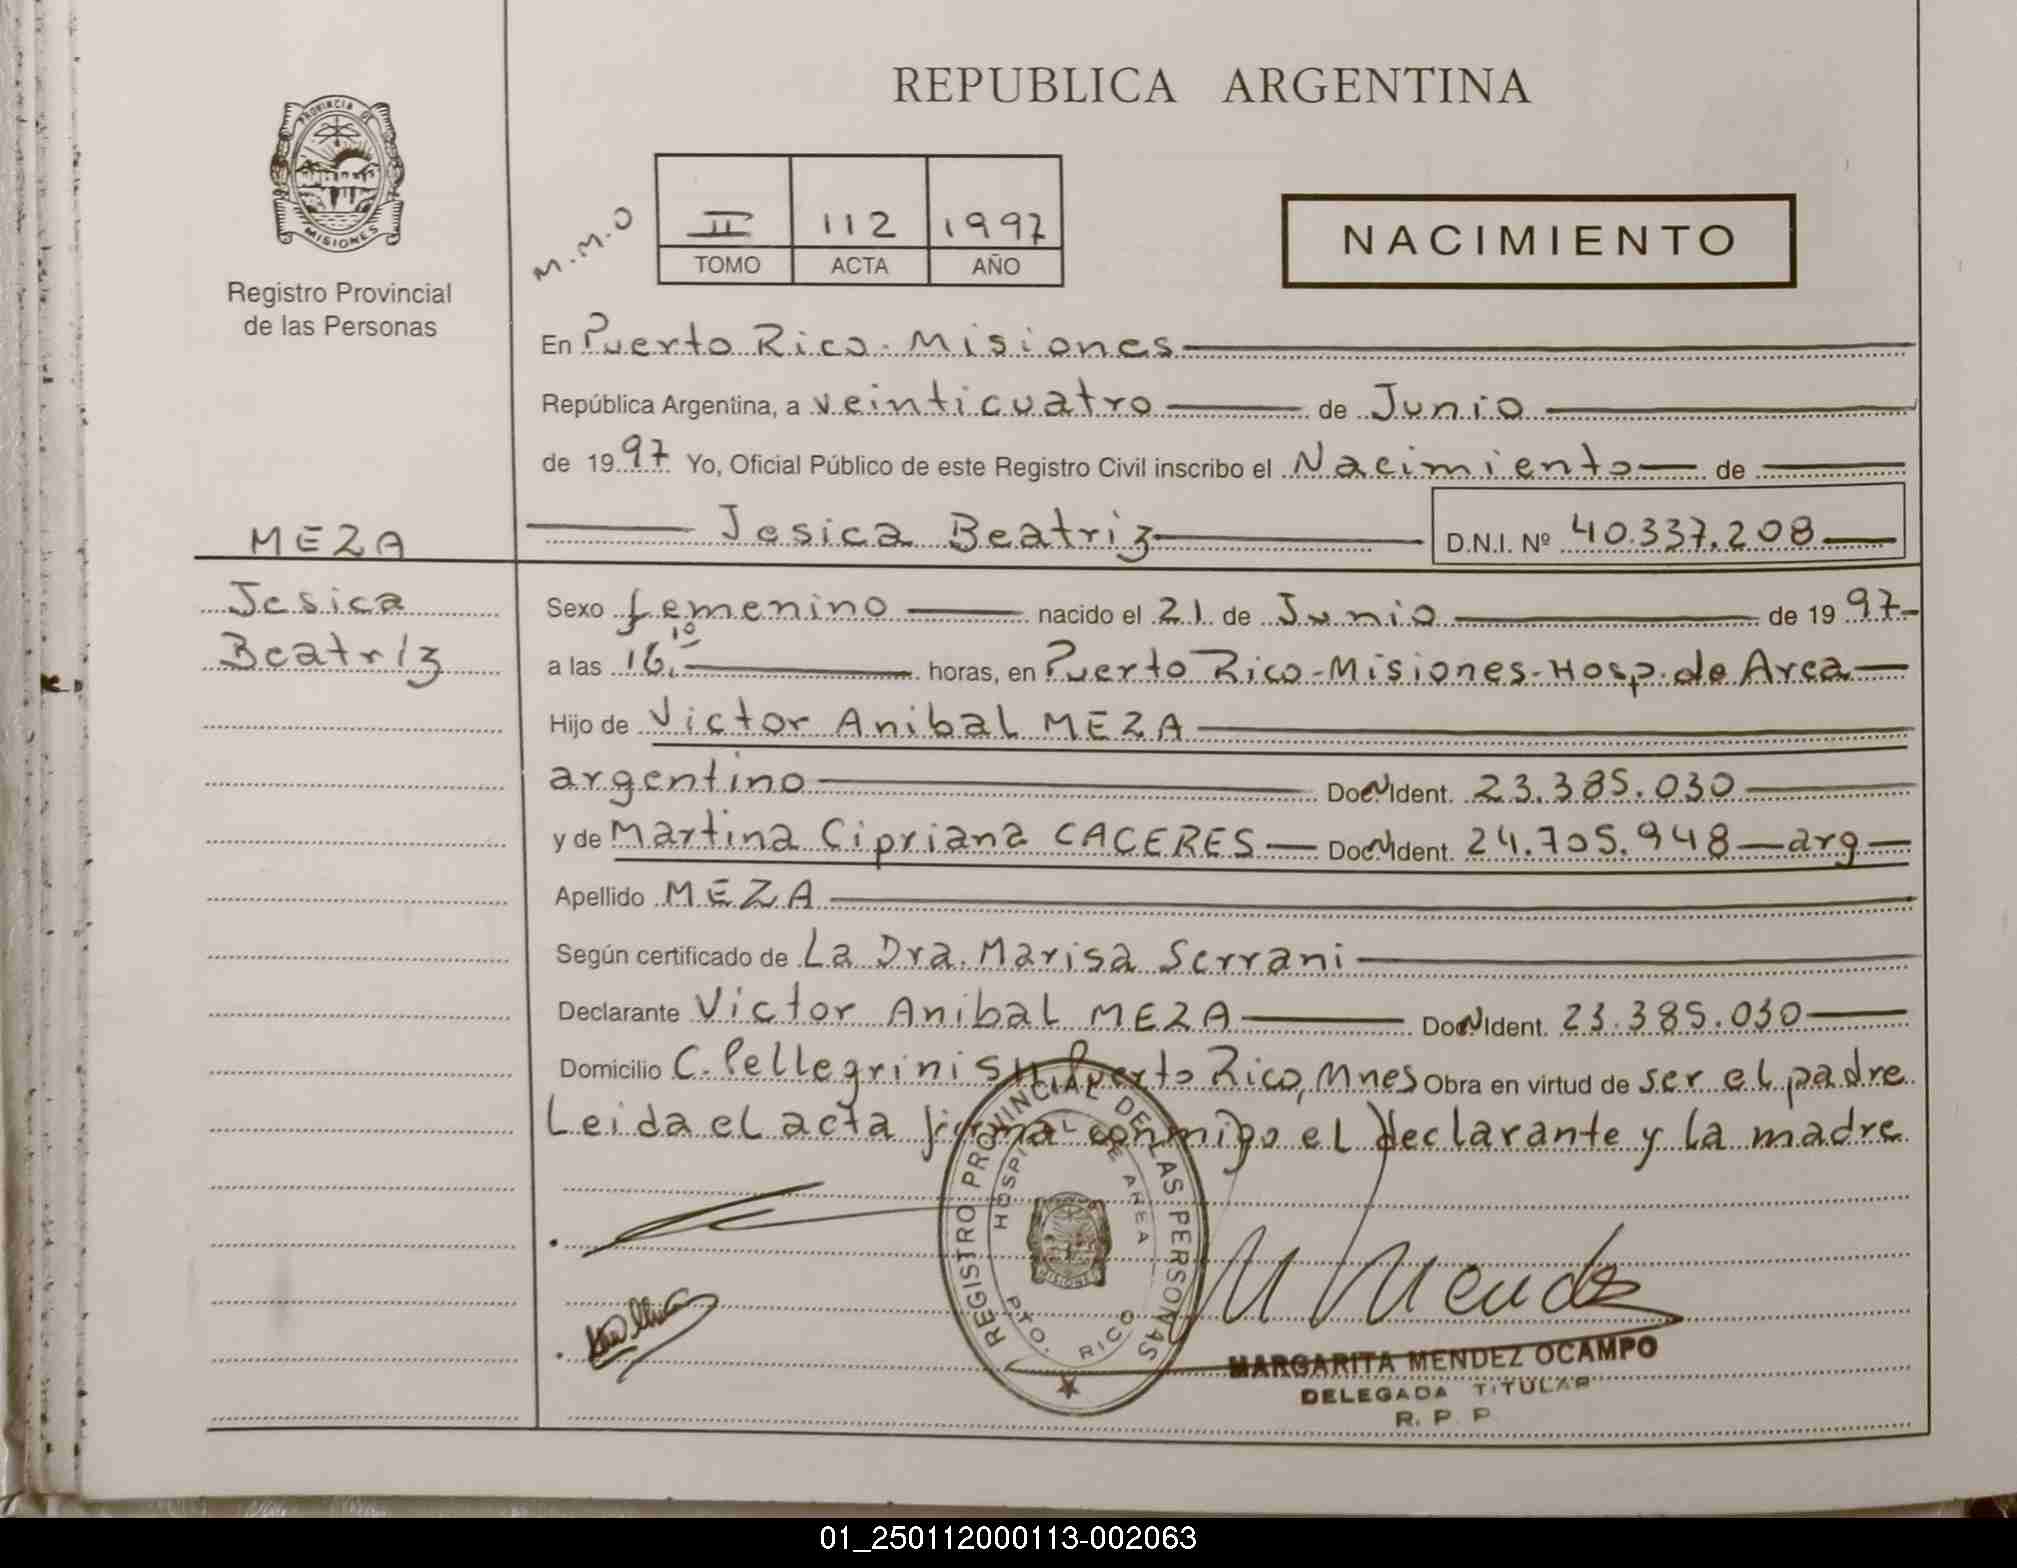 REPUBLICA ARGENTINA
PROVINCIA DE
MISIONES
Registro Provincial
de las Personas
M.M.O
II 112 1997
TOMO ACTA AÑO
NACIMIENTO
En Puerto Rico - Misiones
República Argentina, a veinticuatro de Junio
de 1997 Yo, Oficial Público de este Registro Civil inscribo el Nacimiento de
Jesica Beatriz D.N.I. Nº 40.337.208
MEZA
Jesica
Beatriz
Sexo femenino nacido el 21 de Junio de 1997
a las 16.10 horas, en Puerto Rico-Misiones-Hosp. de Area
Hijo de Victor Anibal MEZA
argentino Doc. N. Ident. 23.385.030
y de Martina Cipriana CACERES Doc. N. Ident. 24.705.948 arg
Apellido MEZA
Según certificado de La Dra. Marisa Serrani
Declarante Victor Anibal MEZA Doc. N. Ident. 23.385.030
Domicilio C. Pellegrini SN Puerto Rico, Mnes Obra en virtud de ser el padre
Leida el acta firma conmigo el declarante y la madre
REGISTRO PROVINCIAL DE LAS PERSONAS
HOSPITAL DE AREA
PTO. RICO
MISIONES
M Mendez
MARGARITA MENDEZ OCAMPO
DELEGADA TITULAR
R. P. P.
01_250112000113-002063